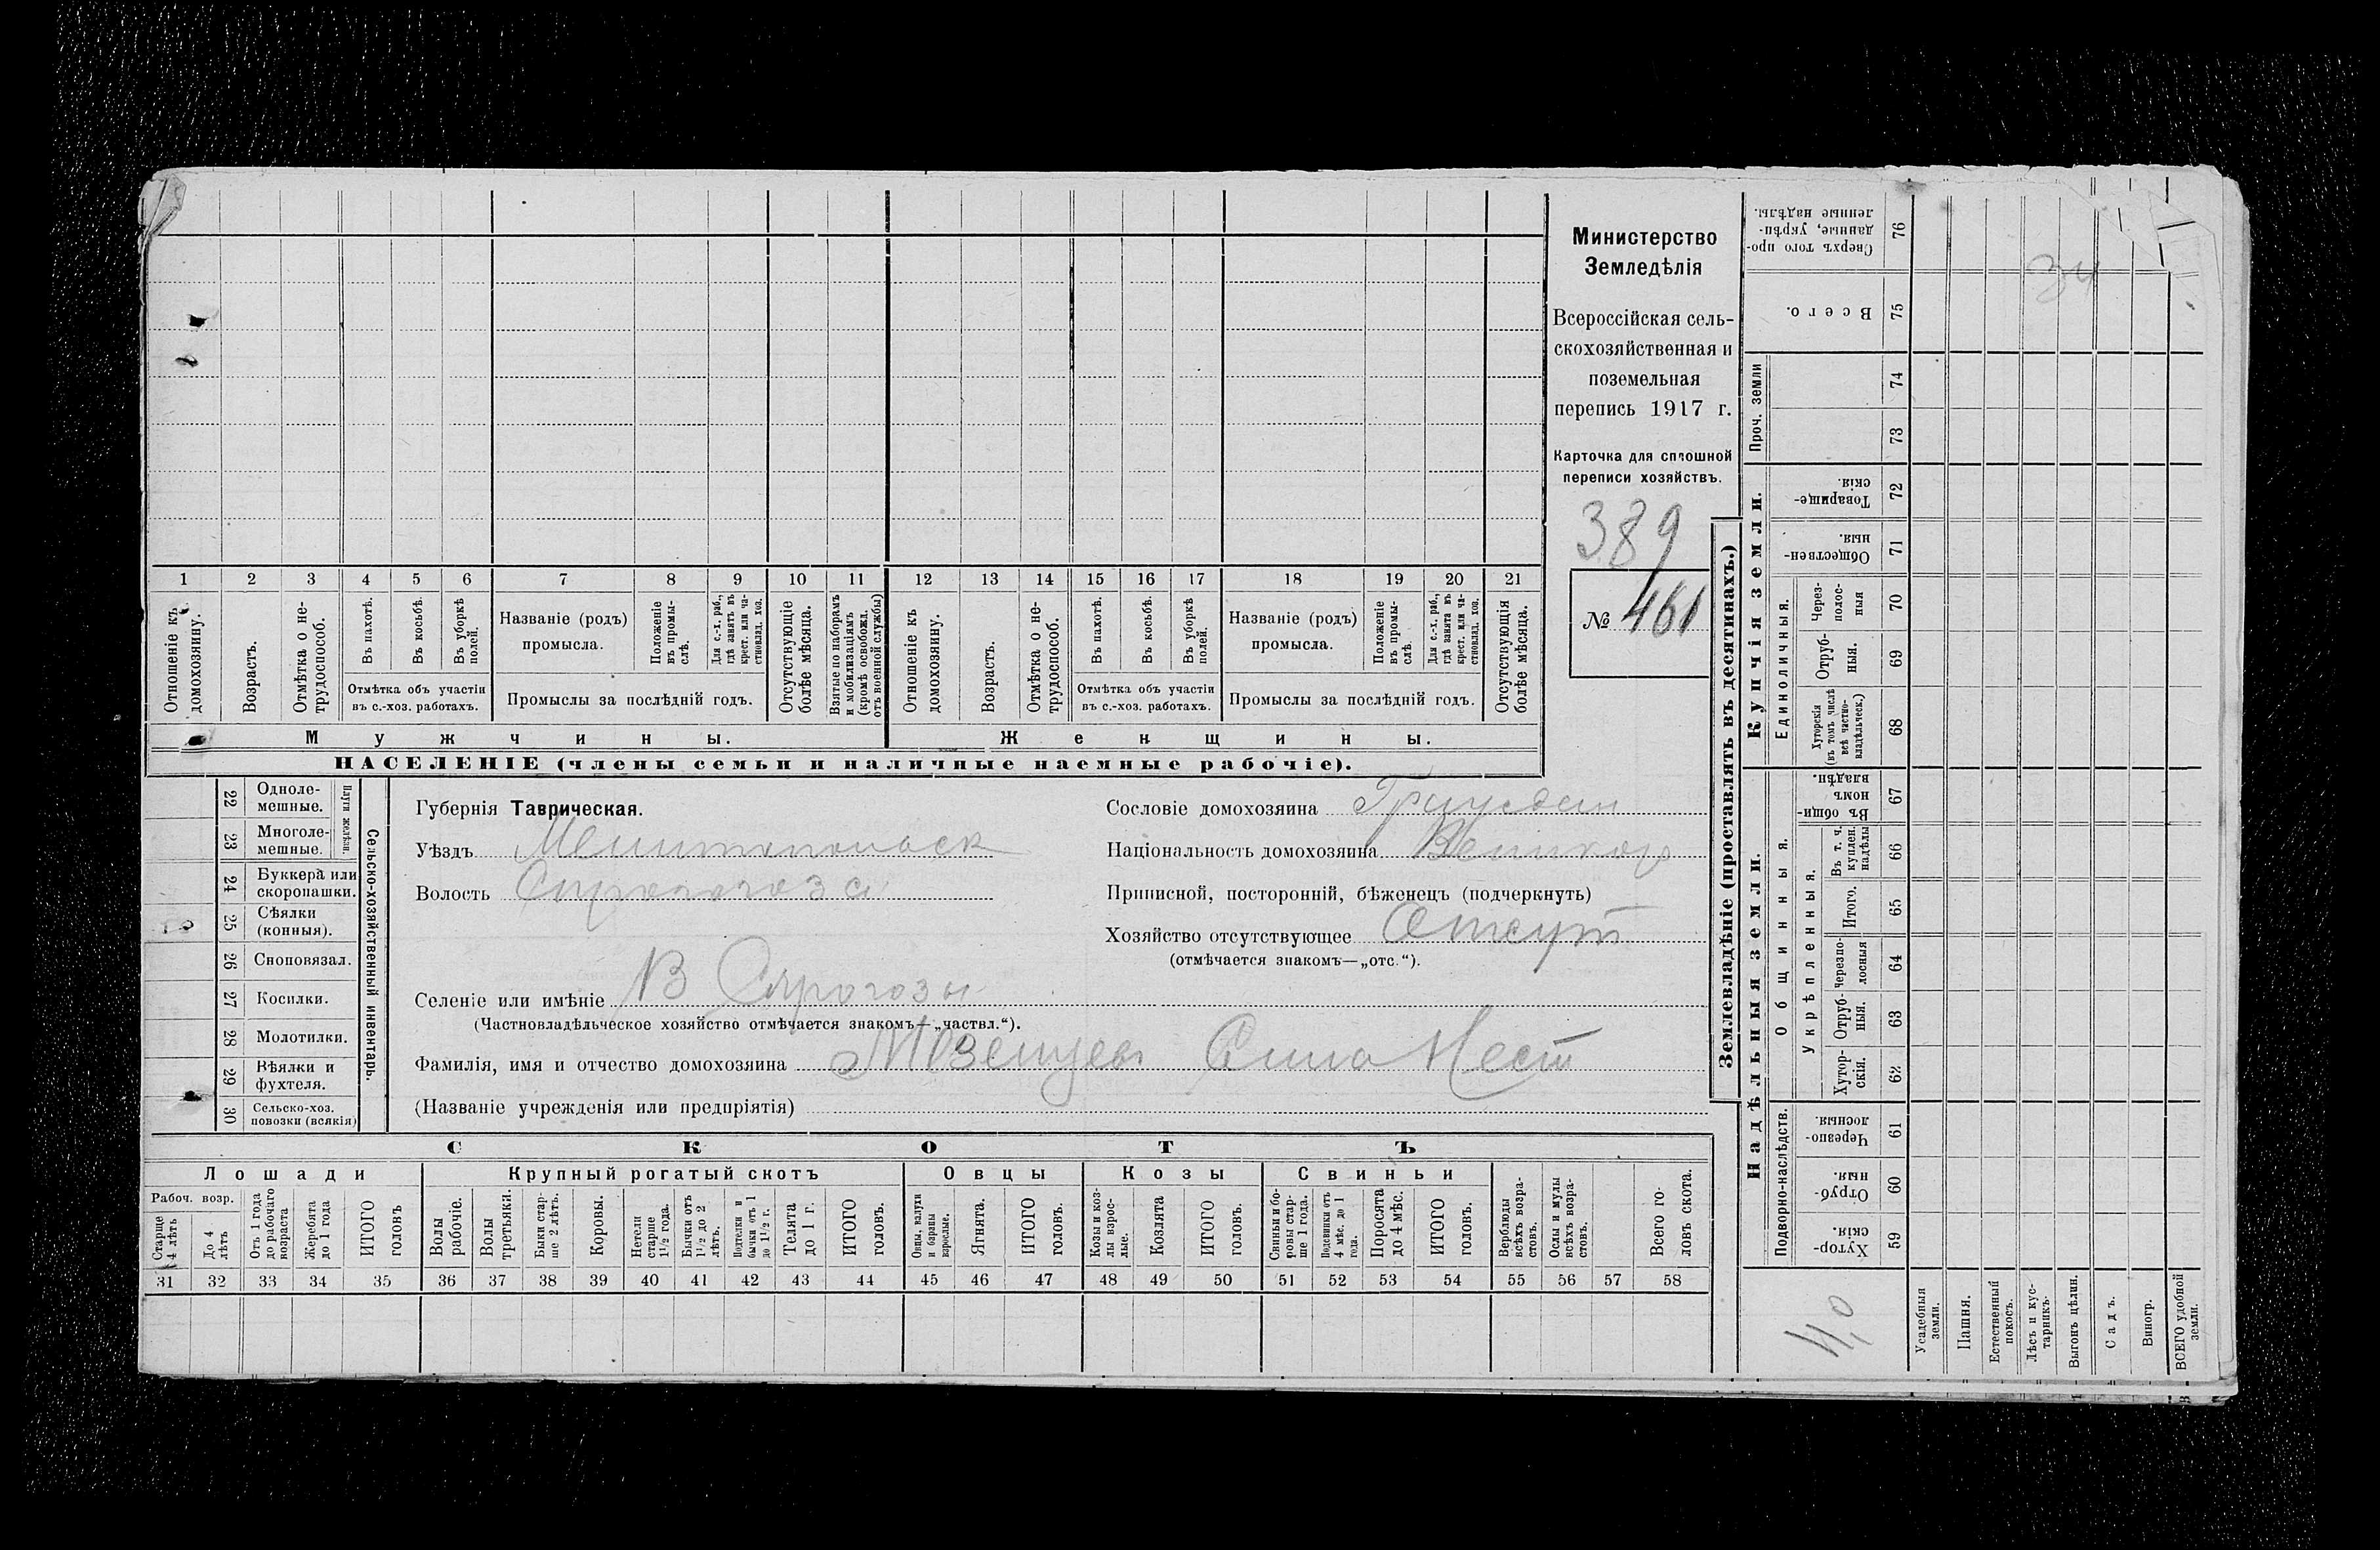 Министерство
Земледѣлія
Всероссійская сель-
скохозяйственная и
поземельная
перепись 1917 г.
Карточка для сплошной
переписи хозяйствъ.
389
№ 461
1 2 3 4 5 6 7 8 9 10 11 12 13 14 15 16 17 18 19 20 21
Отношеніе къ домохозяину.
Возрастъ.
Отмѣтка о не-трудоспособ.
Въ пахотѣ.
Въ косьбѣ.
Въ уборкѣ полей.
Отмѣтка объ участіи
въ с.-хоз. работахъ.
Названіе (родъ)
промысла.
Положеніе въ промы-слѣ.
Для с.-х. раб., гдѣ занятъ въ крест. или ча-стновлад. хоз.
Промыслы за послѣдній годъ.
Отсутствующіе болѣе мѣсяца.
Взятые по наборамъ и мобилизаціямъ (кромѣ освобожд. отъ военной службы)
Отношеніе къ домохозяину.
Возрастъ.
Отмѣтка о не-трудоспособ.
Въ пахотѣ.
Въ косьбѣ.
Въ уборкѣ полей.
Отмѣтка объ участіи
въ с.-хоз. работахъ.
Названіе (родъ)
промысла.
Положеніе въ промы-слѣ.
Для с.-х. раб., гдѣ занята въ крест. или ча-стновлад. хоз.
Промыслы за послѣдній годъ.
Отсутствующія болѣе мѣсяца.
Мужчины.
Женщины.
НАСЕЛЕНІЕ (члены семьи и наличные наемные рабочіе).
22 Одноле-мешные.
23 Многоле-мешные.
Плуги желѣзн.
24 Буккера или скоропашки.
25 Сѣялки (конныя).
26 Сноповязал.
27 Косилки.
28 Молотилки.
29 Вѣялки и фухтеля.
30 Сельско-хоз. повозки (всякія)
Сельско-хозяйственный инвентарь.
Губернія Таврическая.
Уѣздъ Мелитопольск
Волость Сирогозск
Сословіе домохозяина Граждан
Національность домохозяина Великор
Приписной, посторонній, бѣженецъ (подчеркнуть)
Хозяйство отсутствующее Отсут
(отмѣчается знакомъ—„отс.“).
Селеніе или имѣніе В Сирогозы
(Частновладѣльческое хозяйство отмѣчается знакомъ—„частвл.“).
Фамилія, имя и отчество домохозяина Нест
(Названіе учрежденія или предпріятія)
СКОТЪ
Лошади Крупный рогатый скотъ Овцы Козы Свиньи
Рабоч. возр.
Старше 4 лѣтъ
До 4 лѣтъ
Отъ 1 года до рабочаго возраста
Жеребята до 1 года
ИТОГО головъ
Волы рабочіе.
Волы третьяки.
Быки стар-ше 2 лѣтъ.
Коровы.
Нетели старше 1½ года.
Бычки отъ 1½ до 2 лѣтъ.
Подтелки и бычки отъ 1 до 1½ г.
Телята до 1 г.
ИТОГО головъ.
Овцы, валухи и бараны взрослые.
Ягнята.
ИТОГО головъ.
Козы и коз-лы взрос-лые.
Козлята
ИТОГО головъ.
Свиньи и бо-ровы стар-ше 1 года.
Подсвинки отъ 4 мѣс. до 1 года.
Поросята до 4 мѣс.
ИТОГО головъ.
Верблюды всѣхъ возра-стовъ.
Ослы и мулы всѣхъ возра-стовъ.
Всего го-ловъ скота.
31 32 33 34 35 36 37 38 39 40 41 42 43 44 45 46 47 48 49 50 51 52 53 54 55 56 57 58
Землевладѣніе (проставлять въ десятинахъ.)
Купчія земли.
Надѣльныя земли.
Сверхъ того про-данные, укрѣп-ленные надѣлы. 76
Всего. 75
Проч. земли
74
73
Товарище-скія. 72
Обществен-ныя. 71
Единоличныя.
Через-полос-ныя 70
Отруб-ныя. 69
Хуторскія (въ томъ числѣ всѣ частно-владѣльческ.) 68
Въ общин-номъ владѣн. 67
Общинныя.
Укрѣпленныя.
Въ т. ч. куплен. надѣлы 66
Итого. 65
Черезпо-лосныя 64
Отруб-ныя. 63
Хутор-скія. 62
Подворно-наслѣдств.
Черезпо-лосныя. 61
Отруб-ныя. 60
Хутор-скія. 59
34
Усадебныя земли.
Пашня.
Естественный покосъ.
Лѣсъ и кус-тарникъ.
Выгонъ цѣлин.
Садъ.
Виногр.
ВСЕГО удобной земли.